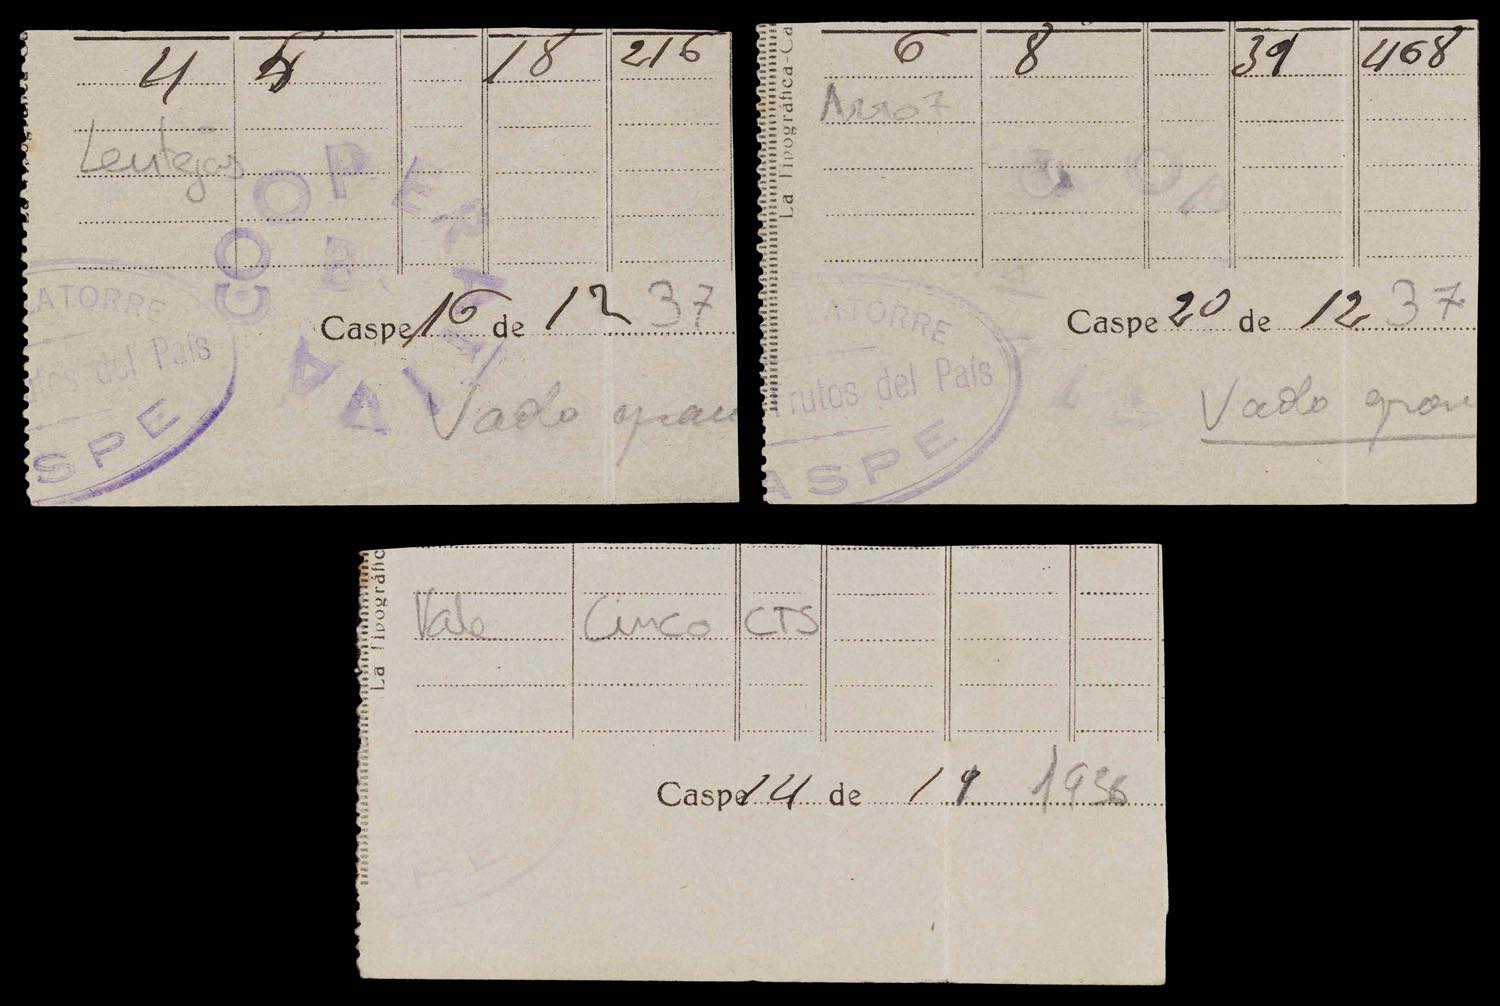 4 18 216
Lentejas
COOPERATIVA
LATORRE
del País
SPE
Caspe 16 de 12 37
Vado gran
La Tipográfica-Ca
6 8 39 468
Arroz
LATORRE
Frutos del País
ASPE
Caspe 20 de 12 37
Vado gran
La Tipográfic
Vale Cinco CTS
Caspe 14 de 1936
PE